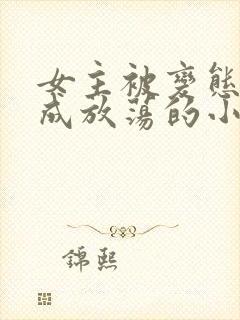 女主被變態
成放蕩的小
錦熙